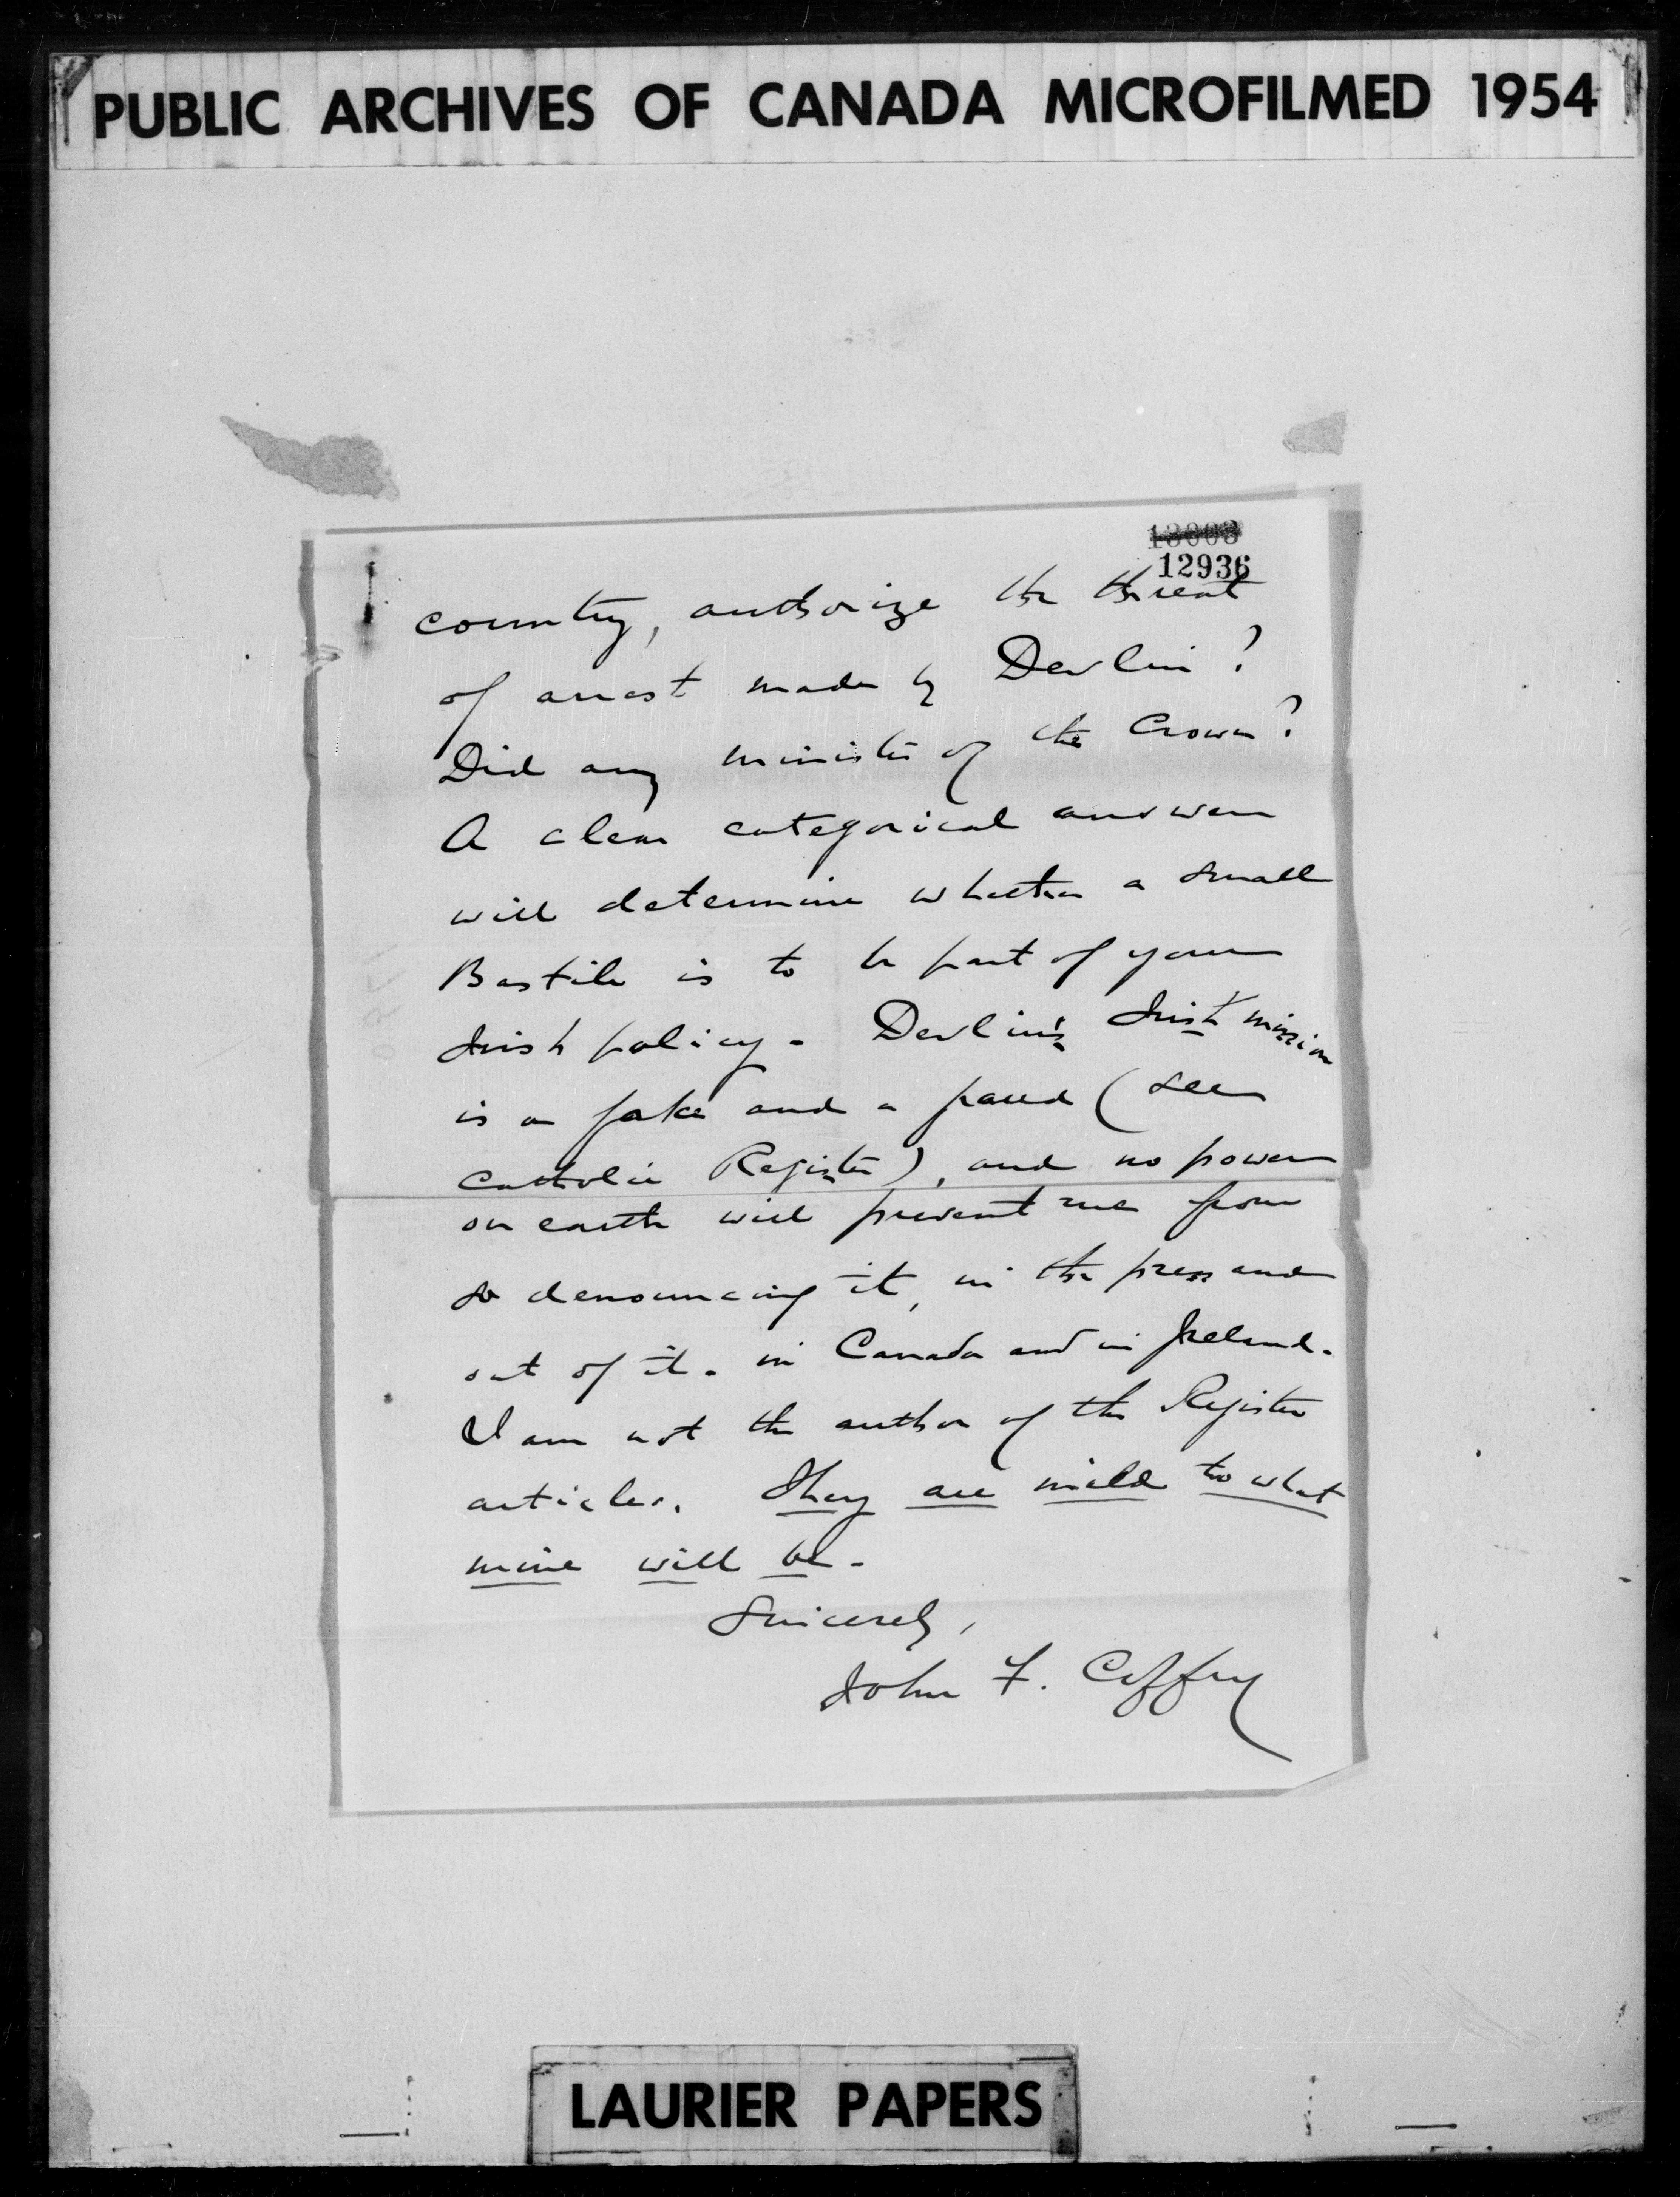 PUBLIC ARCHIVES OF CANADA MICROFILMED 1954
13003
12936
country, authorize the threat
of arrest made by Devlin?
Did any minister of the Crown?
A clear categorical answer
will determine whether a small
Bastile is to be part of your
Irish policy. Devlin's Irish mission
is a fake and a fraud (see
Catholic Register), and no power
on earth will prevent me from
so denouncing it, in the press and
out of it. in Canada and in Ireland.
I am not the author of the Register
articles. They are mild to what
mine will be.
Sincerely,
John F. Coffey
LAURIER PAPERS